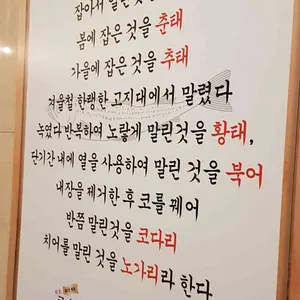 잡아서 말린 것을
봄에 잡은 것을 춘태
가을에 잡은 것을 추태
겨울철 한랭한 고지대에서 말렸다
녹였다 반복하여 노랗게 말린것을 황태,
단기간 내에 열을 사용하여 말린 것을 북어
내장을 제거한 후 코를 꿰어
반쯤 말린것을 코다리
치어를 말린 것을 노가리라 한다